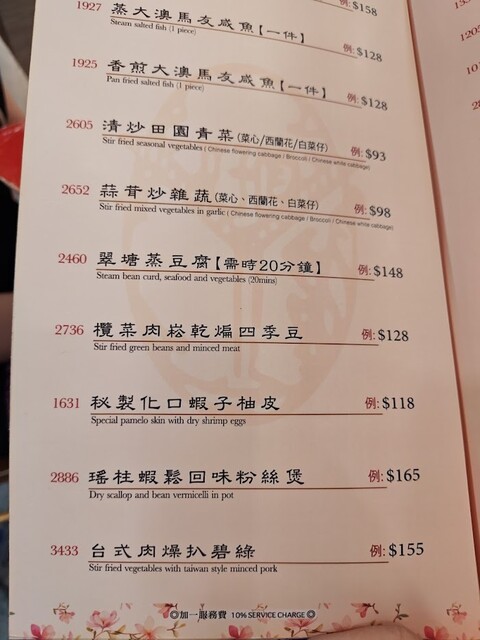 例: $158
1927 蒸大澳馬友咸魚【一件】
Steam salted fish (1 piece)
例: $128
1925 香煎大澳馬友咸魚【一件】
Pan fried salted fish (1 piece)
例: $128
2605 清炒田園青菜(菜心/西蘭花/白菜仔)
Stir fried seasonal vegetables ( Chinese flowering cabbage / Broccoli / Chinese white cabbage)
例: $93
2652 蒜茸炒雜蔬(菜心、西蘭花、白菜仔)
Stir fried mixed vegetables in garlic ( Chinese flowering cabbage / Broccoli / Chinese white cabbage)
例: $98
2460 翠塘蒸豆腐【需時20分鐘】 例: $148
Steam bean curd, seafood and vegetables (20mins)
2736 欖菜肉崧乾煸四季豆 例: $128
Stir fried green beans and minced meat
1631 秘製化口蝦子柚皮 例: $118
Special pamelo skin with dry shrimp eggs
2886 瑤柱蝦鬆回味粉絲煲 例: $165
Dry scallop and bean vermicelli in pot
3433 台式肉燥扒碧綠 例: $155
Stir fried vegetables with taiwan style minced pork
◎加一服務費 10% SERVICE CHARGE ◎